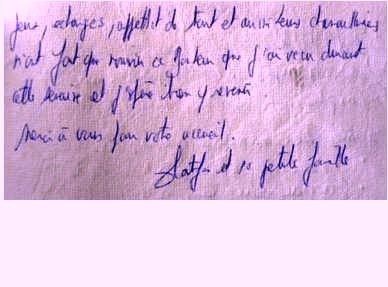 jeux, échanges, appétit de tout et aussi leurs
n'ont fait que nourrir ce que j'ai vécu durant
cette semaine et j'espère bien y revenir.
Merci à vous pour votre accueil.
et sa petite famille